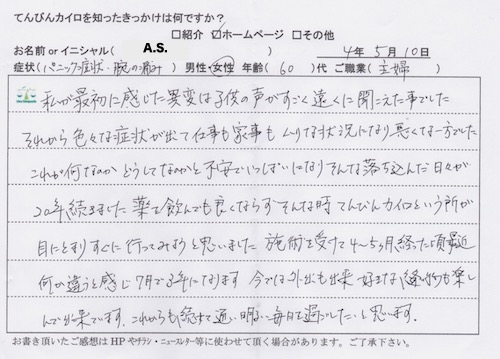 てんびんカイロを知ったきっかけは何ですか?
□紹介 ☑ホームページ □その他
お名前 or イニシャル( A.S. ) 4年 5月 10日
症状(パニック症状・腕の痛み) 男性・女性 年齢(60)代 ご職業(主婦)
私が最初に感じた異変は子供の声がすごく遠くに聞こえた事でした
それから色々な症状が出て仕事も家事もムリな状況になり悪くなる一方でした
これが何なのかどうしてなのかと不安でいっぱいになりそんな落ち込んだ日々が
20年続きました 薬を飲んでも良くならずそんな時てんびんカイロという所が
目にとまりすぐに行ってみようと思いました 施術を受けて4〜5ヶ月経った頃最近
何か違うと感じ7月で3年になります 今では外出も出来 好きな も楽し
んで出来ています。これからも続けて通い明るい毎日を過ごしたいと思います。
お書き頂いたご感想はHPやチラシ・ニュースレター等に使わせて頂く場合があります。ご了承下さい。